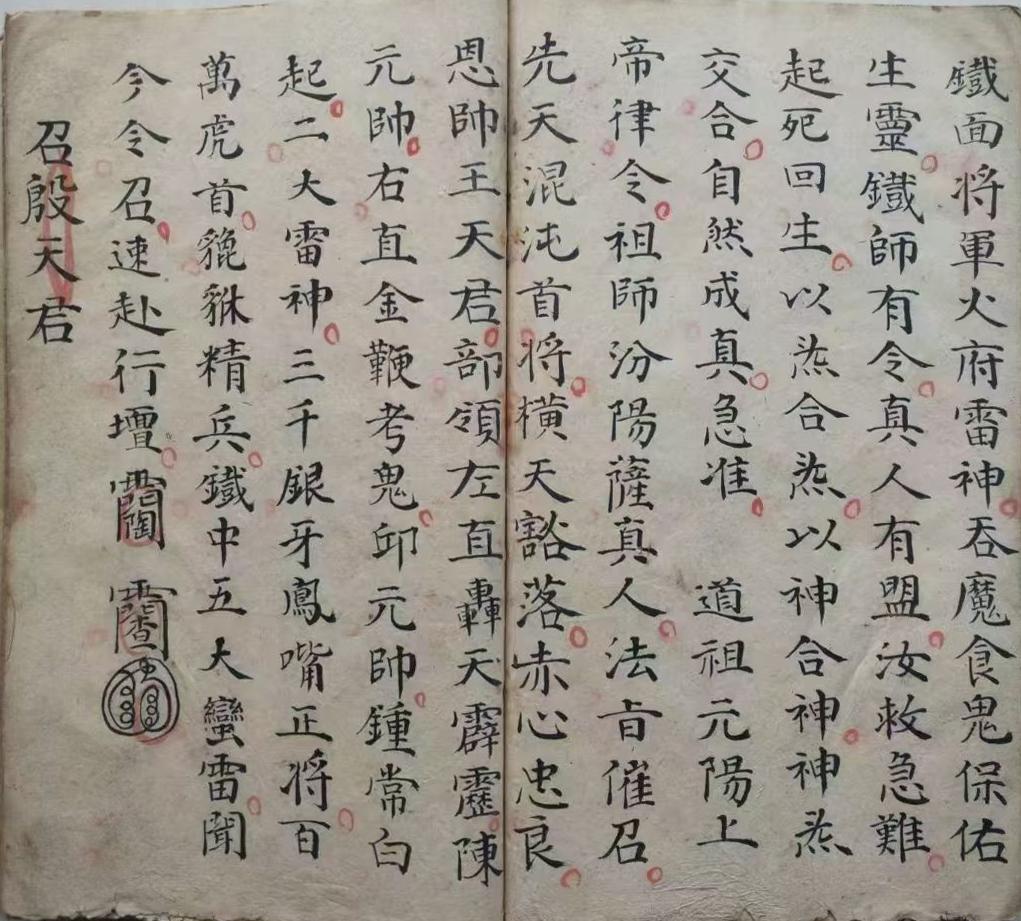 鐵面将軍火府雷神吞魔食鬼保佑
生靈鐵師有令真人有盟汝救急難
起死回生以炁合炁以神合神神炁
交合自然成真急准 道祖元陽上
帝律令祖師汾陽薩真人法旨催召
先天混沌首将橫天豁落赤心忠良
恩帥王天君部領左直轟天霹靂陳
元帥右直金鞭考鬼邱元帥鍾常白
起二大雷神三千銀牙鳳嘴正将百
萬虎首貔貅精兵鐵中五大蠻雷聞
今令召速赴行壇
召殷天君